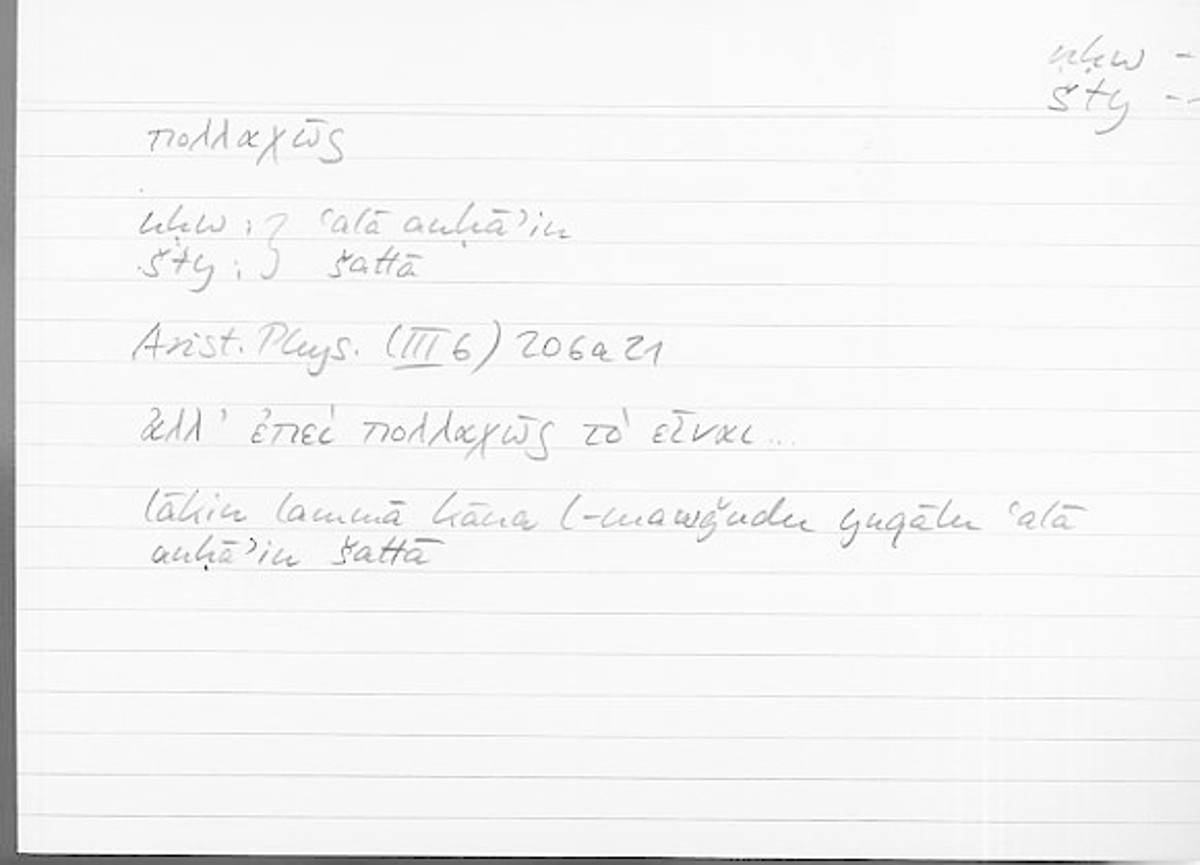 nḥw -
šty --
πολλαχῶς
nḥw : } ʿalā anḥāʾin
šty : } šattā
Arist. Phys. (III 6) 206a21
ἀλλ’ ἐπεὶ πολλαχῶς τὸ εἶναι...
lākin lammā kāna l-mawǧudu yuqālu ʿalā
anḥāʾin šattā